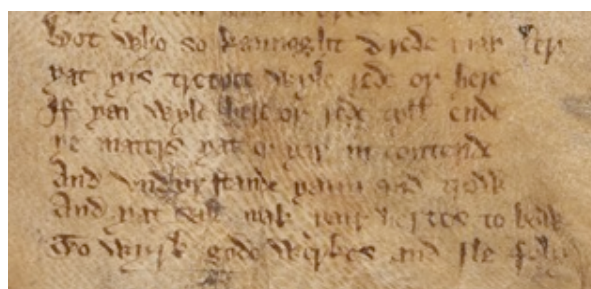 Bot who so kannoght drede may ler
yat yis tretyce wyle rede or here
If yai wyle here or rede tyll ende
ye maters yat er yar in contende
And vndyrstande yaim and trow
And yat will mak yair hertes to bow
To wyrk gode werkes and fle foly